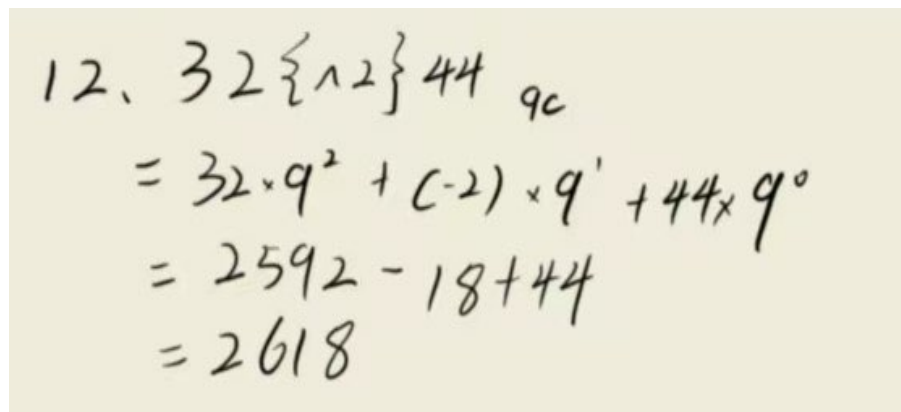 12、32{^2}44 9c
= 32·9² + (-2)×9¹ + 44×9⁰
= 2592 - 18 + 44
= 2618